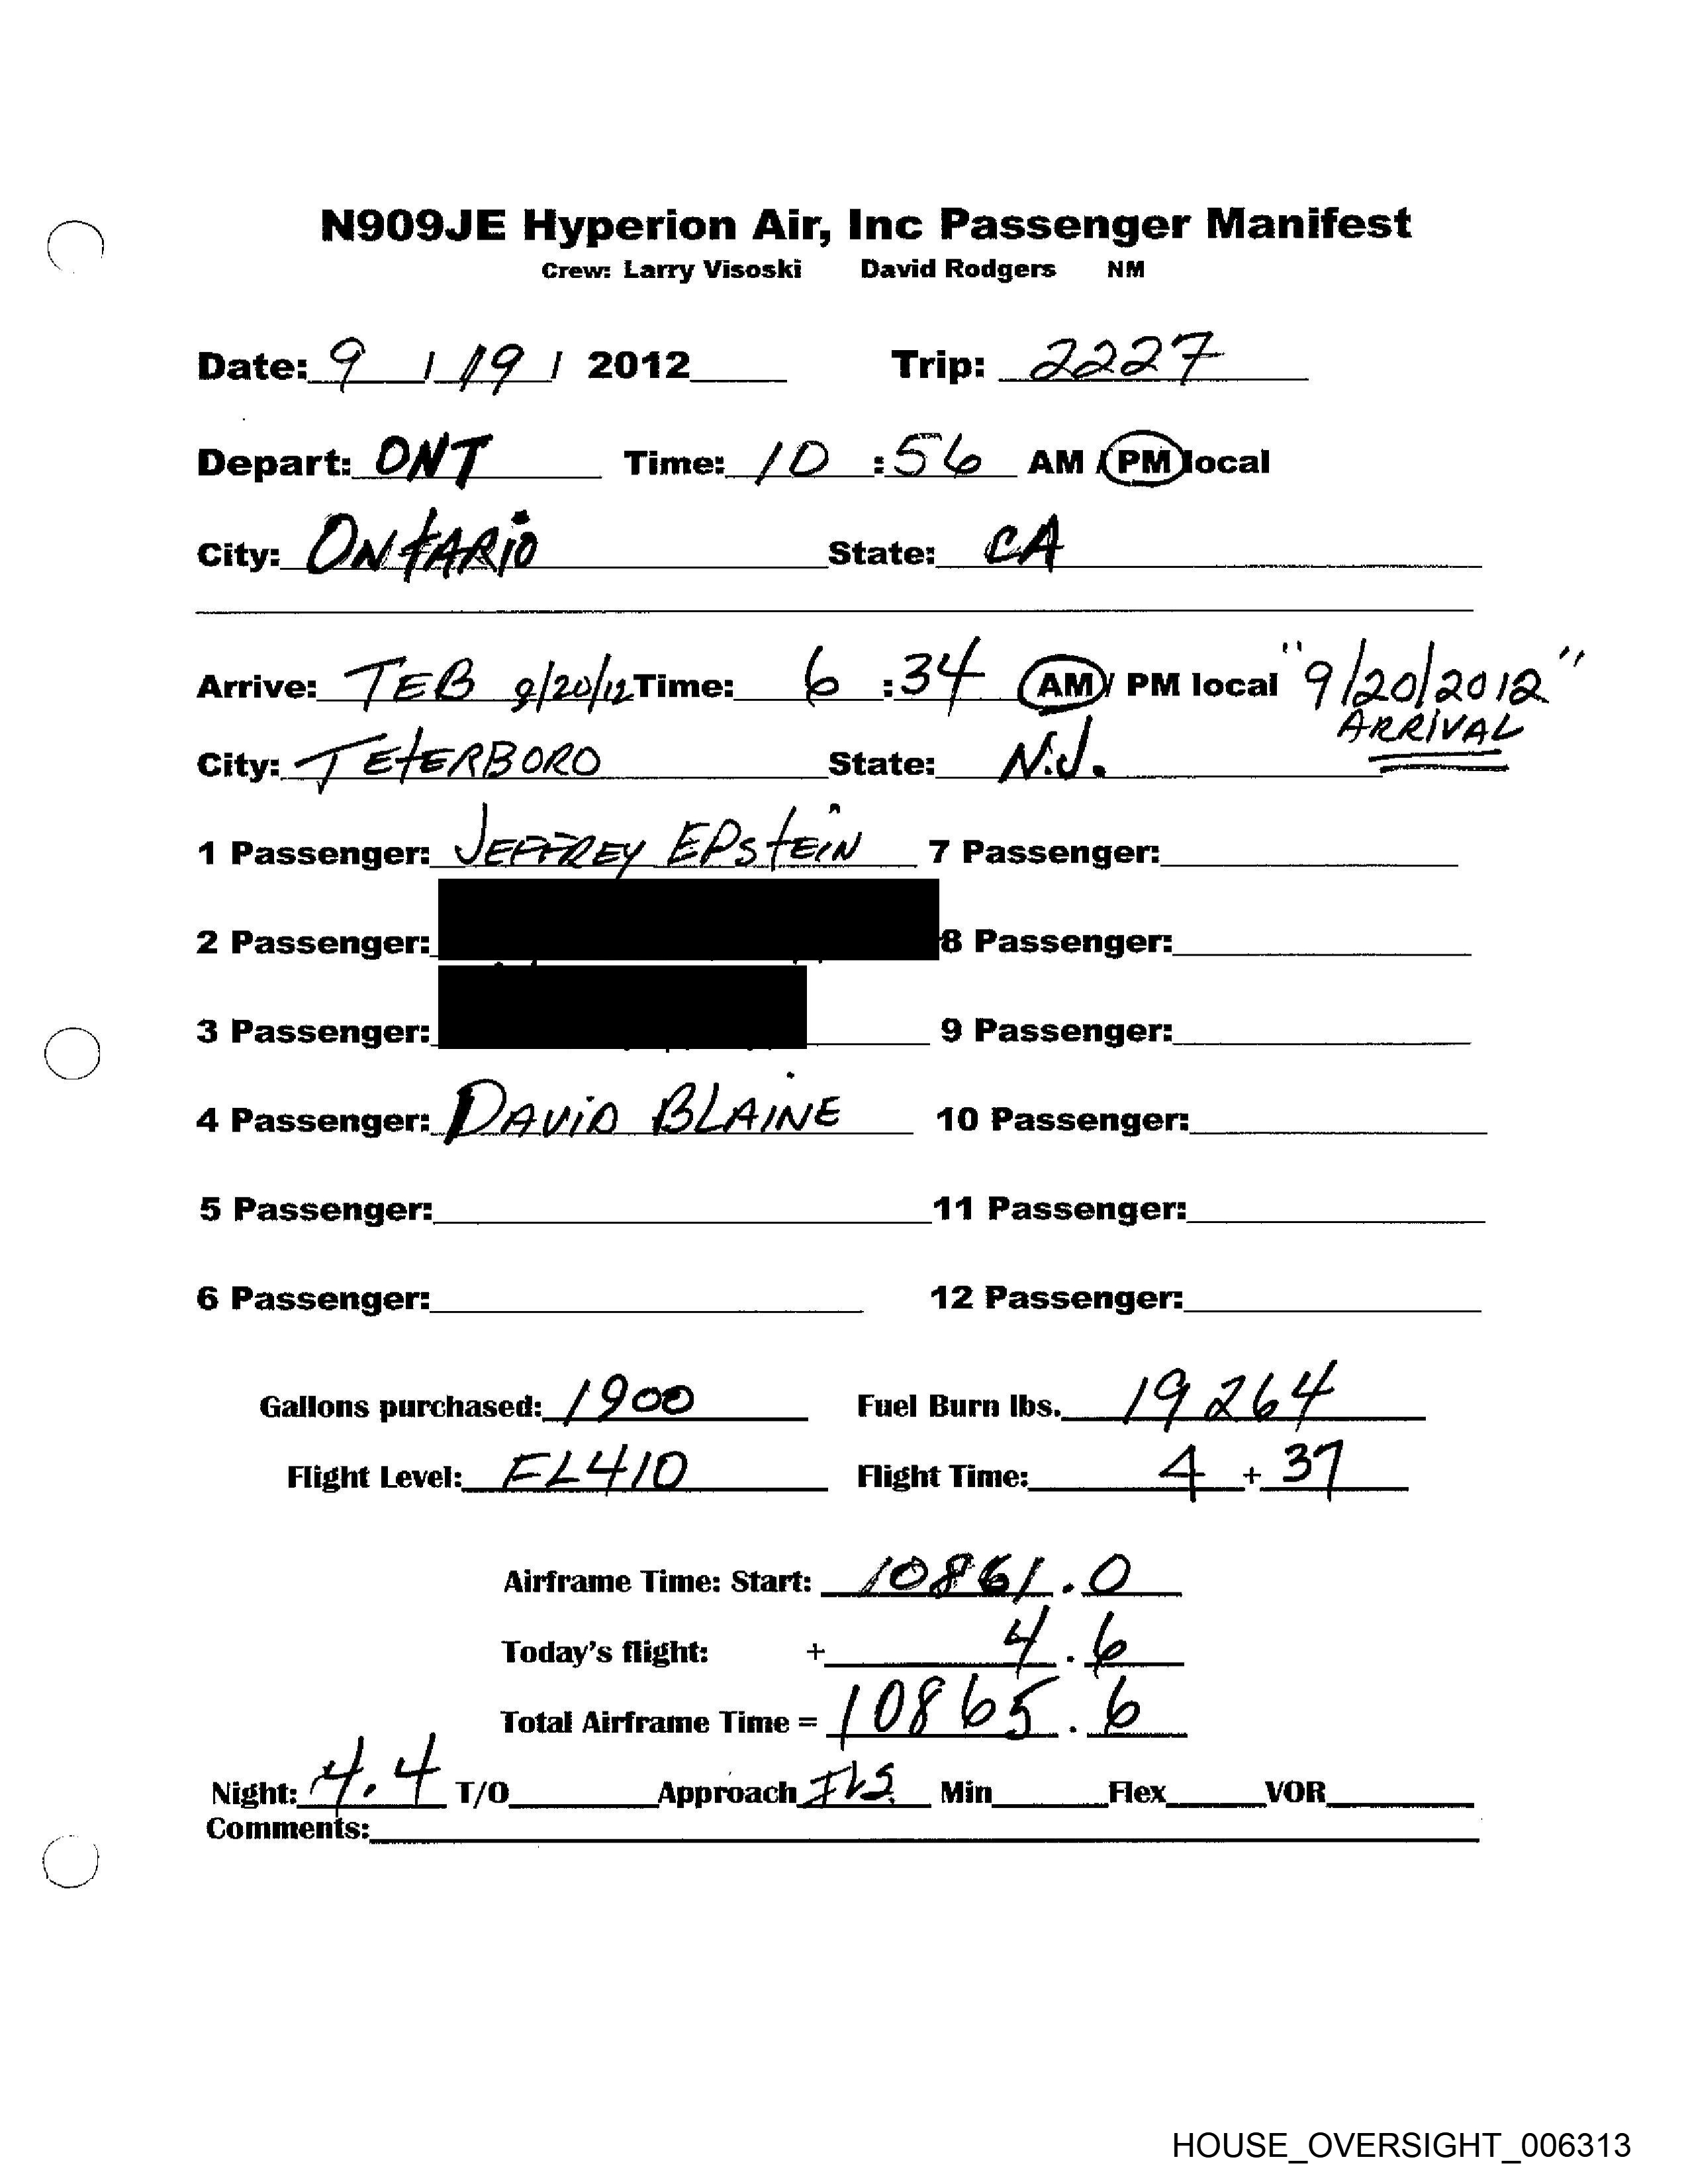 N909JE Hyperion Air, Inc Passenger Manifest
Crew: Larry Visoski David Rodgers NM
Date: 9 / 19 / 2012 Trip: 2227
Depart: ONT Time: 10 : 56 AM / PM local
City: ONTARIO State: CA
Arrive: TEB 9/20/12 Time: 6 : 34 AM / PM local "9/20/2012"
ARRIVAL
City: TETERBORO State: N.J.
1 Passenger: JEFFREY EPSTEIN 7 Passenger:
2 Passenger: 8 Passenger:
3 Passenger: 9 Passenger:
4 Passenger: DAVID BLAINE 10 Passenger:
5 Passenger: 11 Passenger:
6 Passenger: 12 Passenger:
Gallons purchased: 1900 Fuel Burn lbs. 19264
Flight Level: FL410 Flight Time: 4 + 37
Airframe Time: Start: 10861.0
Today's flight: + 4.6
Total Airframe Time = 10865.6
Night: 4.4 T/O Approach ILS Min Flex VOR
Comments:
HOUSE_OVERSIGHT_006313